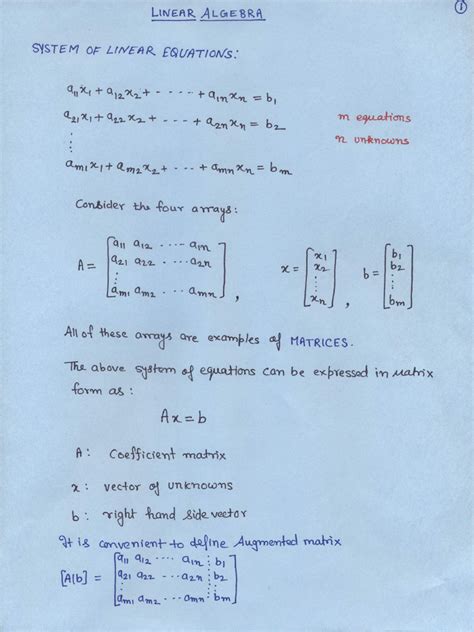 LINEAR ALGEBRA
1
SYSTEM OF LINEAR EQUATIONS:
a11x1 + a12x2 + - - - - + a1nxn = b1
a21x1 + a22x2 + - - - - + a2nxn = b2
⋮
am1x1 + am2x2 + - - - + amnxn = bm
m equations
n unknowns
Consider the four arrays:
A = [a11 a12 ···· a1n
a21 a22 ···· a2n
⋮
am1 am2 ···· amn],
x = [x1
x2
⋮
xn],
b = [b1
b2
⋮
bm]
All of these arrays are examples of MATRICES.
The above system of equations can be expressed in Matrix
form as :
Ax = b
A : Coefficient matrix
x : vector of unknowns
b : right hand side vector
It is convenient to define Augmented matrix
[A|b] = [a11 a12 ···· a1n ⋮ b1
a21 a22 ···· a2n ⋮ b2
⋮
am1 am2 ···· amn ⋮ bm]